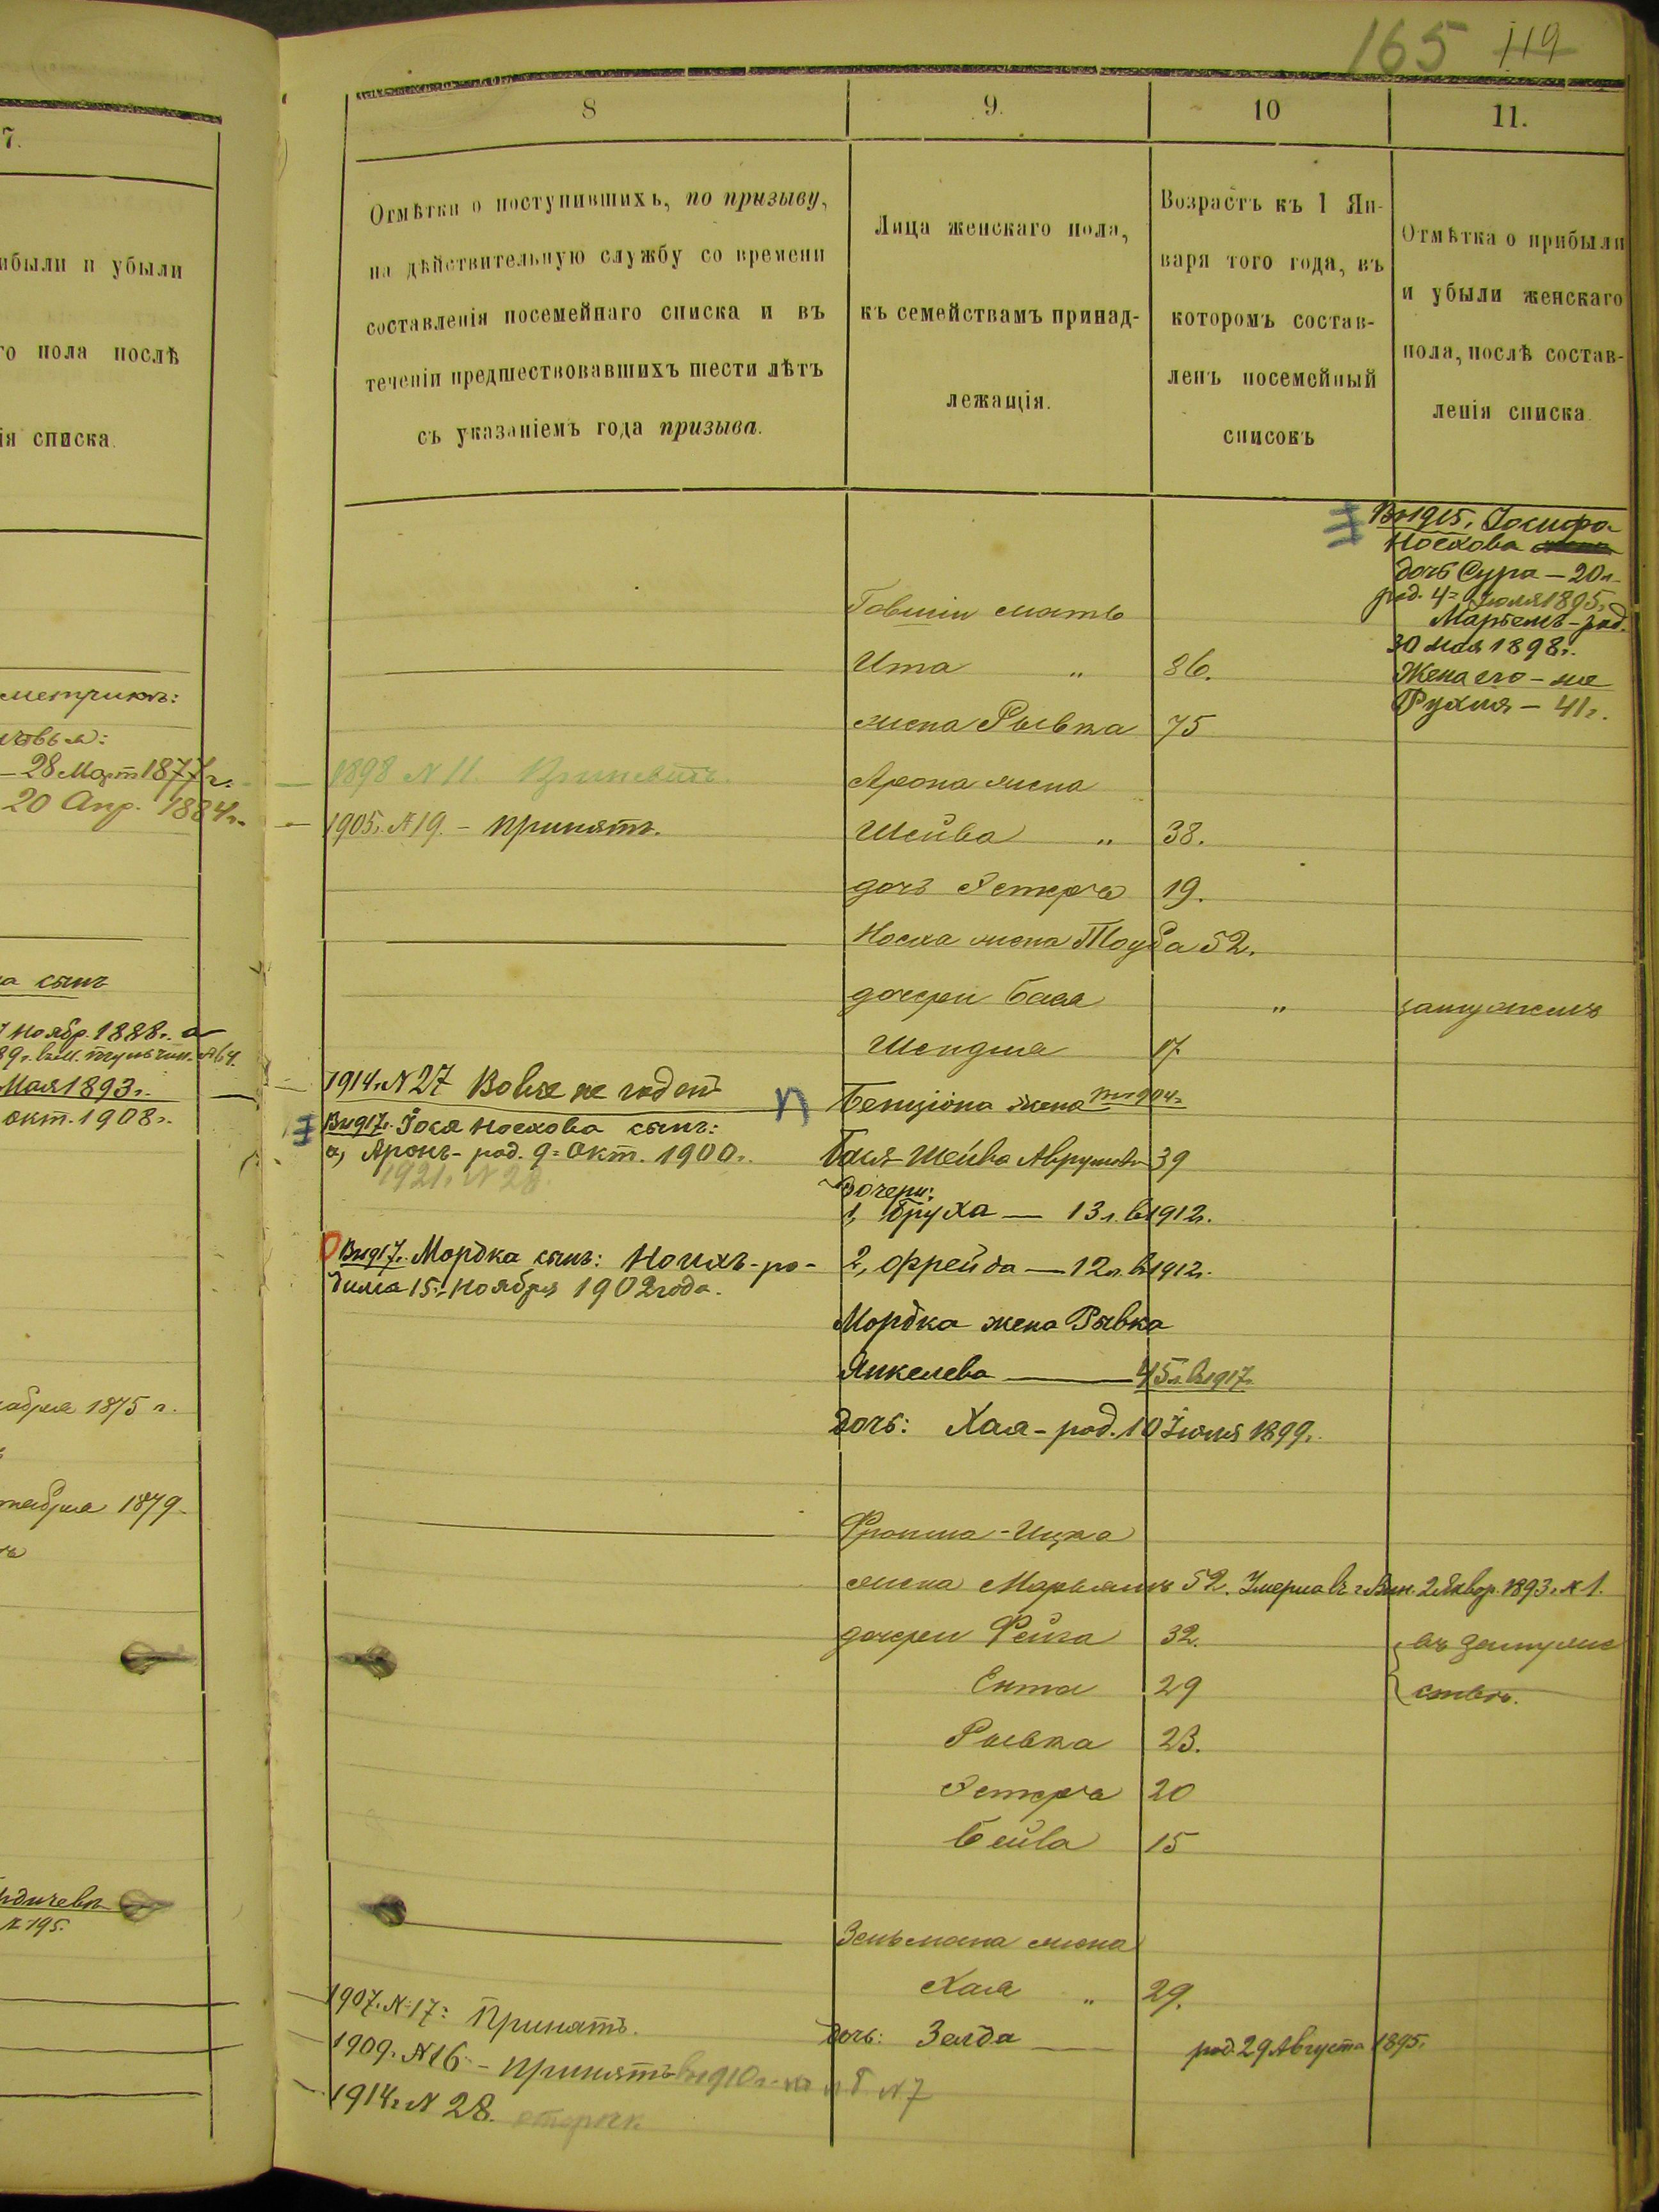 165 119
7.
ибыли и убыли
го пола послѣ
ія списка.
метрикъ:
28 Март 1877 г.
20 Апр. 1884 г.
а сынъ
Ноябр. 1888 г.
Мая 1893 г.
окт. 1908 г.
абря 1875 г.
1879
№ 195.
8
9.
10
11.
Отмѣтки о поступившихъ, по призыву,
на дѣйствительную службу со времени
составленія посемейнаго списка и въ
теченіи предшествовавшихъ шести лѣтъ
съ указаніемъ года призыва.
Лица женскаго пола,
къ семействамъ принад-
лежащія.
Возрастъ къ 1 Ян-
варя того года, въ
которомъ состав-
ленъ посемейный
списокъ
Отмѣтка о прибыли
и убыли женскаго
пола, послѣ состав-
ленія списка.
Въ 1915 г. Іосифа
Носхова
дочь Сура — 20 л.
род. 4 = Іюля 1895 г.
Марьемъ - род.
30 мая 1898 г.
Жена его - же
Рухля — 41 г.
Говшіи мать
Ита " 86.
жена Рывка 75
1898 № 11.
Арона жена
1905 г. № 19. - Принятъ.
Шейва " 38.
дочь Эстера 19.
Носха жена Тауба 52.
дочери Бася " замужемъ
Шендля 17
1914 г. № 27 Вовсе не годен
Бенціона жена
Въ 1917 г. Іося Носхова сынъ:
а, Аронъ - род. 9 = Окт. 1900 г.
1921 г. № 28.
Бася-Шейва Аврумова 39
Дочери:
1, Бруха — 13 л. въ 1912 г.
Въ 1917 г. Мордка сынъ: Ноихъ - ро-
дился 15 = Ноября 1902 года.
2, Фрейда — 12 л. въ 1912 г.
Мордка жена Рывка
Янкелева — 45 л. въ 1917 г.
дочь: Хая - род. 10 Іюля 1899 г.
Фроима-Ицка
жена Марьямъ 52. Умерла въ г. Вин. 2 Январ. 1893 г. № 1.
дочери Фейга 32. въ замуже
Ента 29 ствѣ.
Рывка 23.
Эстера 20
Бейла 15
Зельмана жена
Хая " 29.
1907 г. № 17: Принятъ.
дочь: Зелда — род. 29 Августа 1895 г.
1909 г. № 16 - принятъ въ 1910 г. № 7
1914 г. № 28.